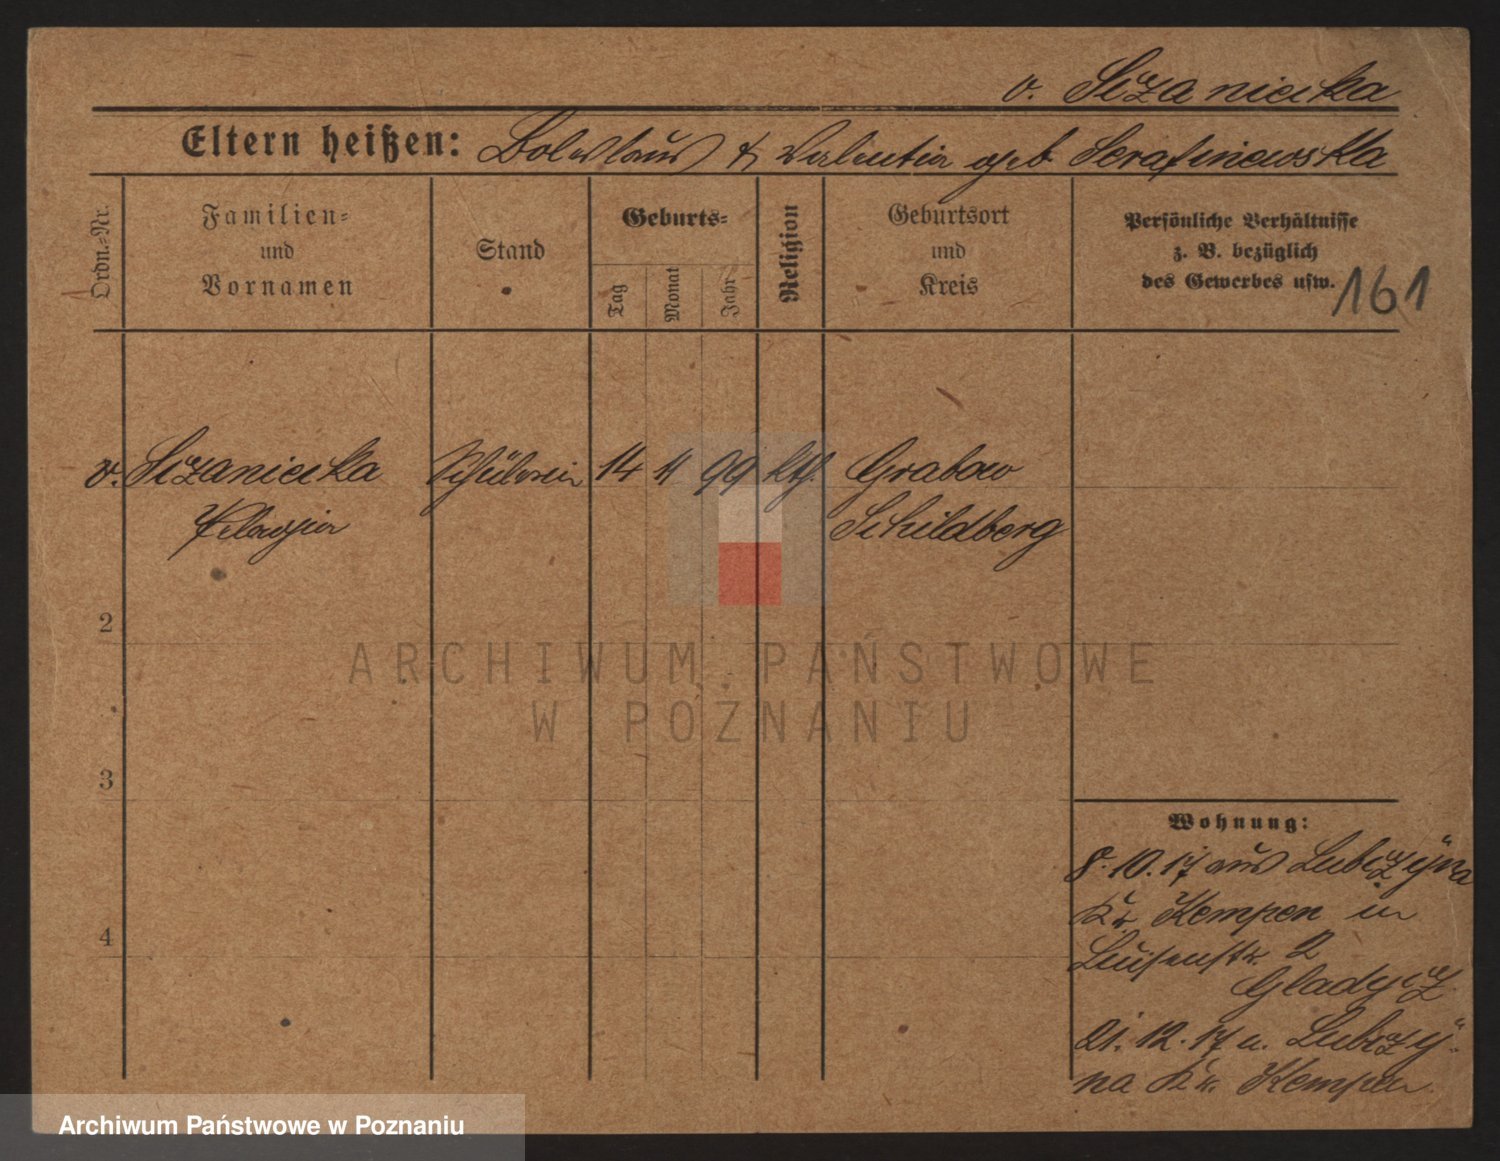 v. Sczaniecka
Eltern heißen: Boleslaus & Valentia geb Serafinowska
Ordn.=Nr.
Familien=
und
Vornamen
Stand
Geburts=
Tag
Monat
Jahr
Religion
Geburtsort
und
Kreis
Persönliche Verhältnisse
z. B. bezüglich
des Gewerbes usw.
161
v. Sczaniecka Schülerin 14 11 99 kth. Grabow
Pelagia Schildberg
2
3
4
Wohnung:
8. 10. 17 aus
Kr. Kempen in
Luisenstr. 2
Gladysz
21. 12. 17 n.
na Kr. Kempen.
ARCHIWUM PAŃSTWOWE
W POZNANIU
Archiwum Państwowe w Poznaniu